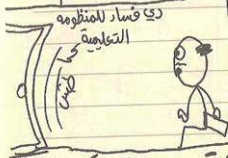 دي فساد للمنظومه
التعليمية